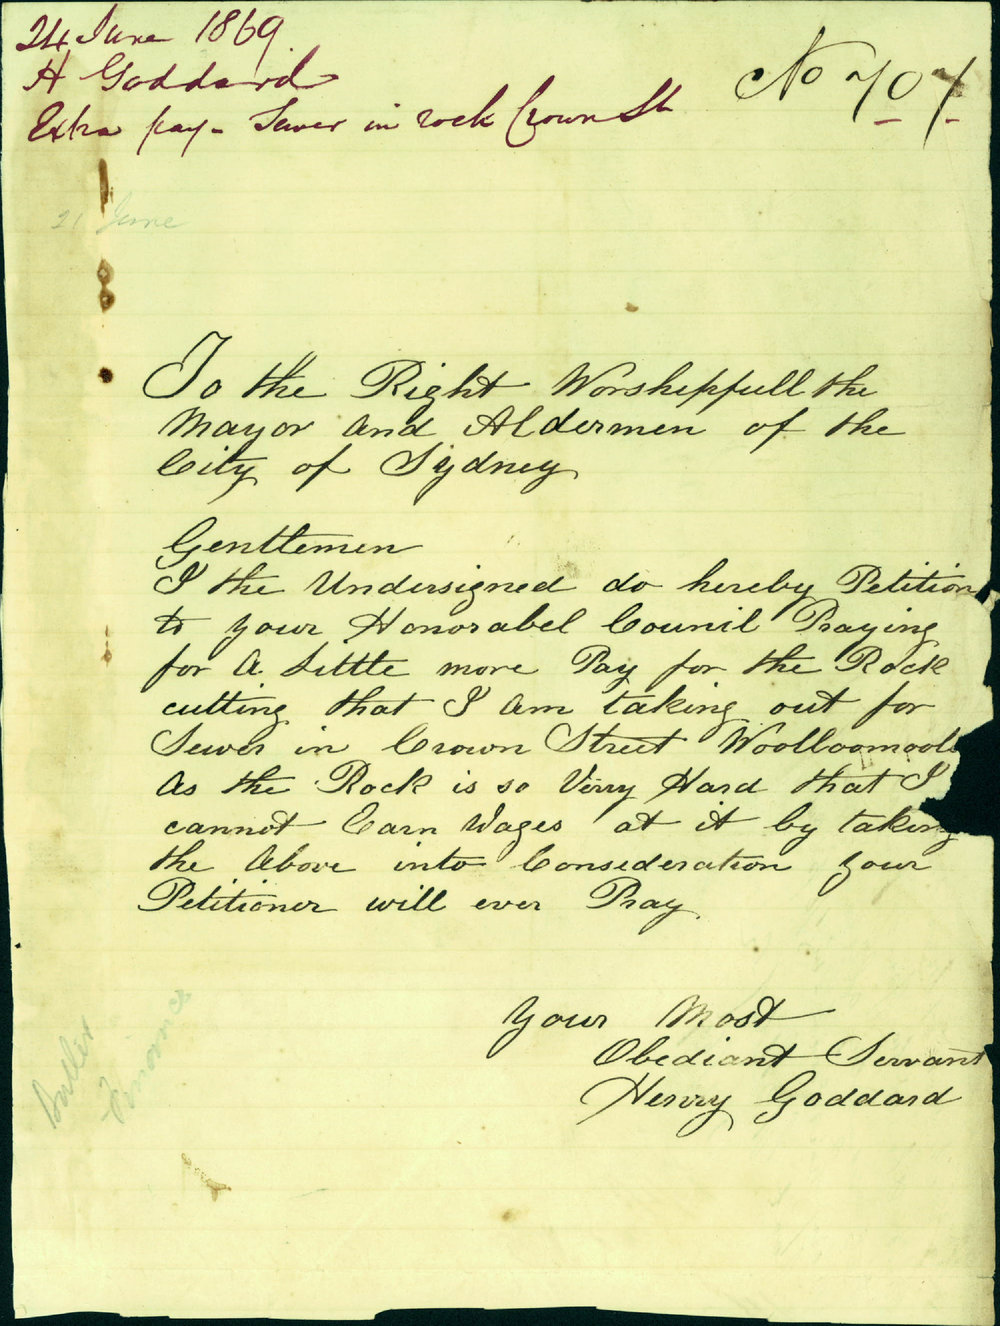 24 June 1869
H Goddard
Extra pay - Sewer in rock Crown St
No 707
21 June
To the Right Worshepfull the
Mayor and Aldermen of the
City of Sydney
Genttemen
I the Undersigned do hereby Petition
to your Honorabel Counil Praying
for a Little more Pay for the Rock
cutting that I am taking out for
Sewer in Crown Street Woolloomool
As the Rock is so Verry Hard that I
cannot Earn Wages at it by taking
the Above into Consederation your
Petitioner will ever Pray.
Your Most
Obediant Servant
Henry Goddard
Finance